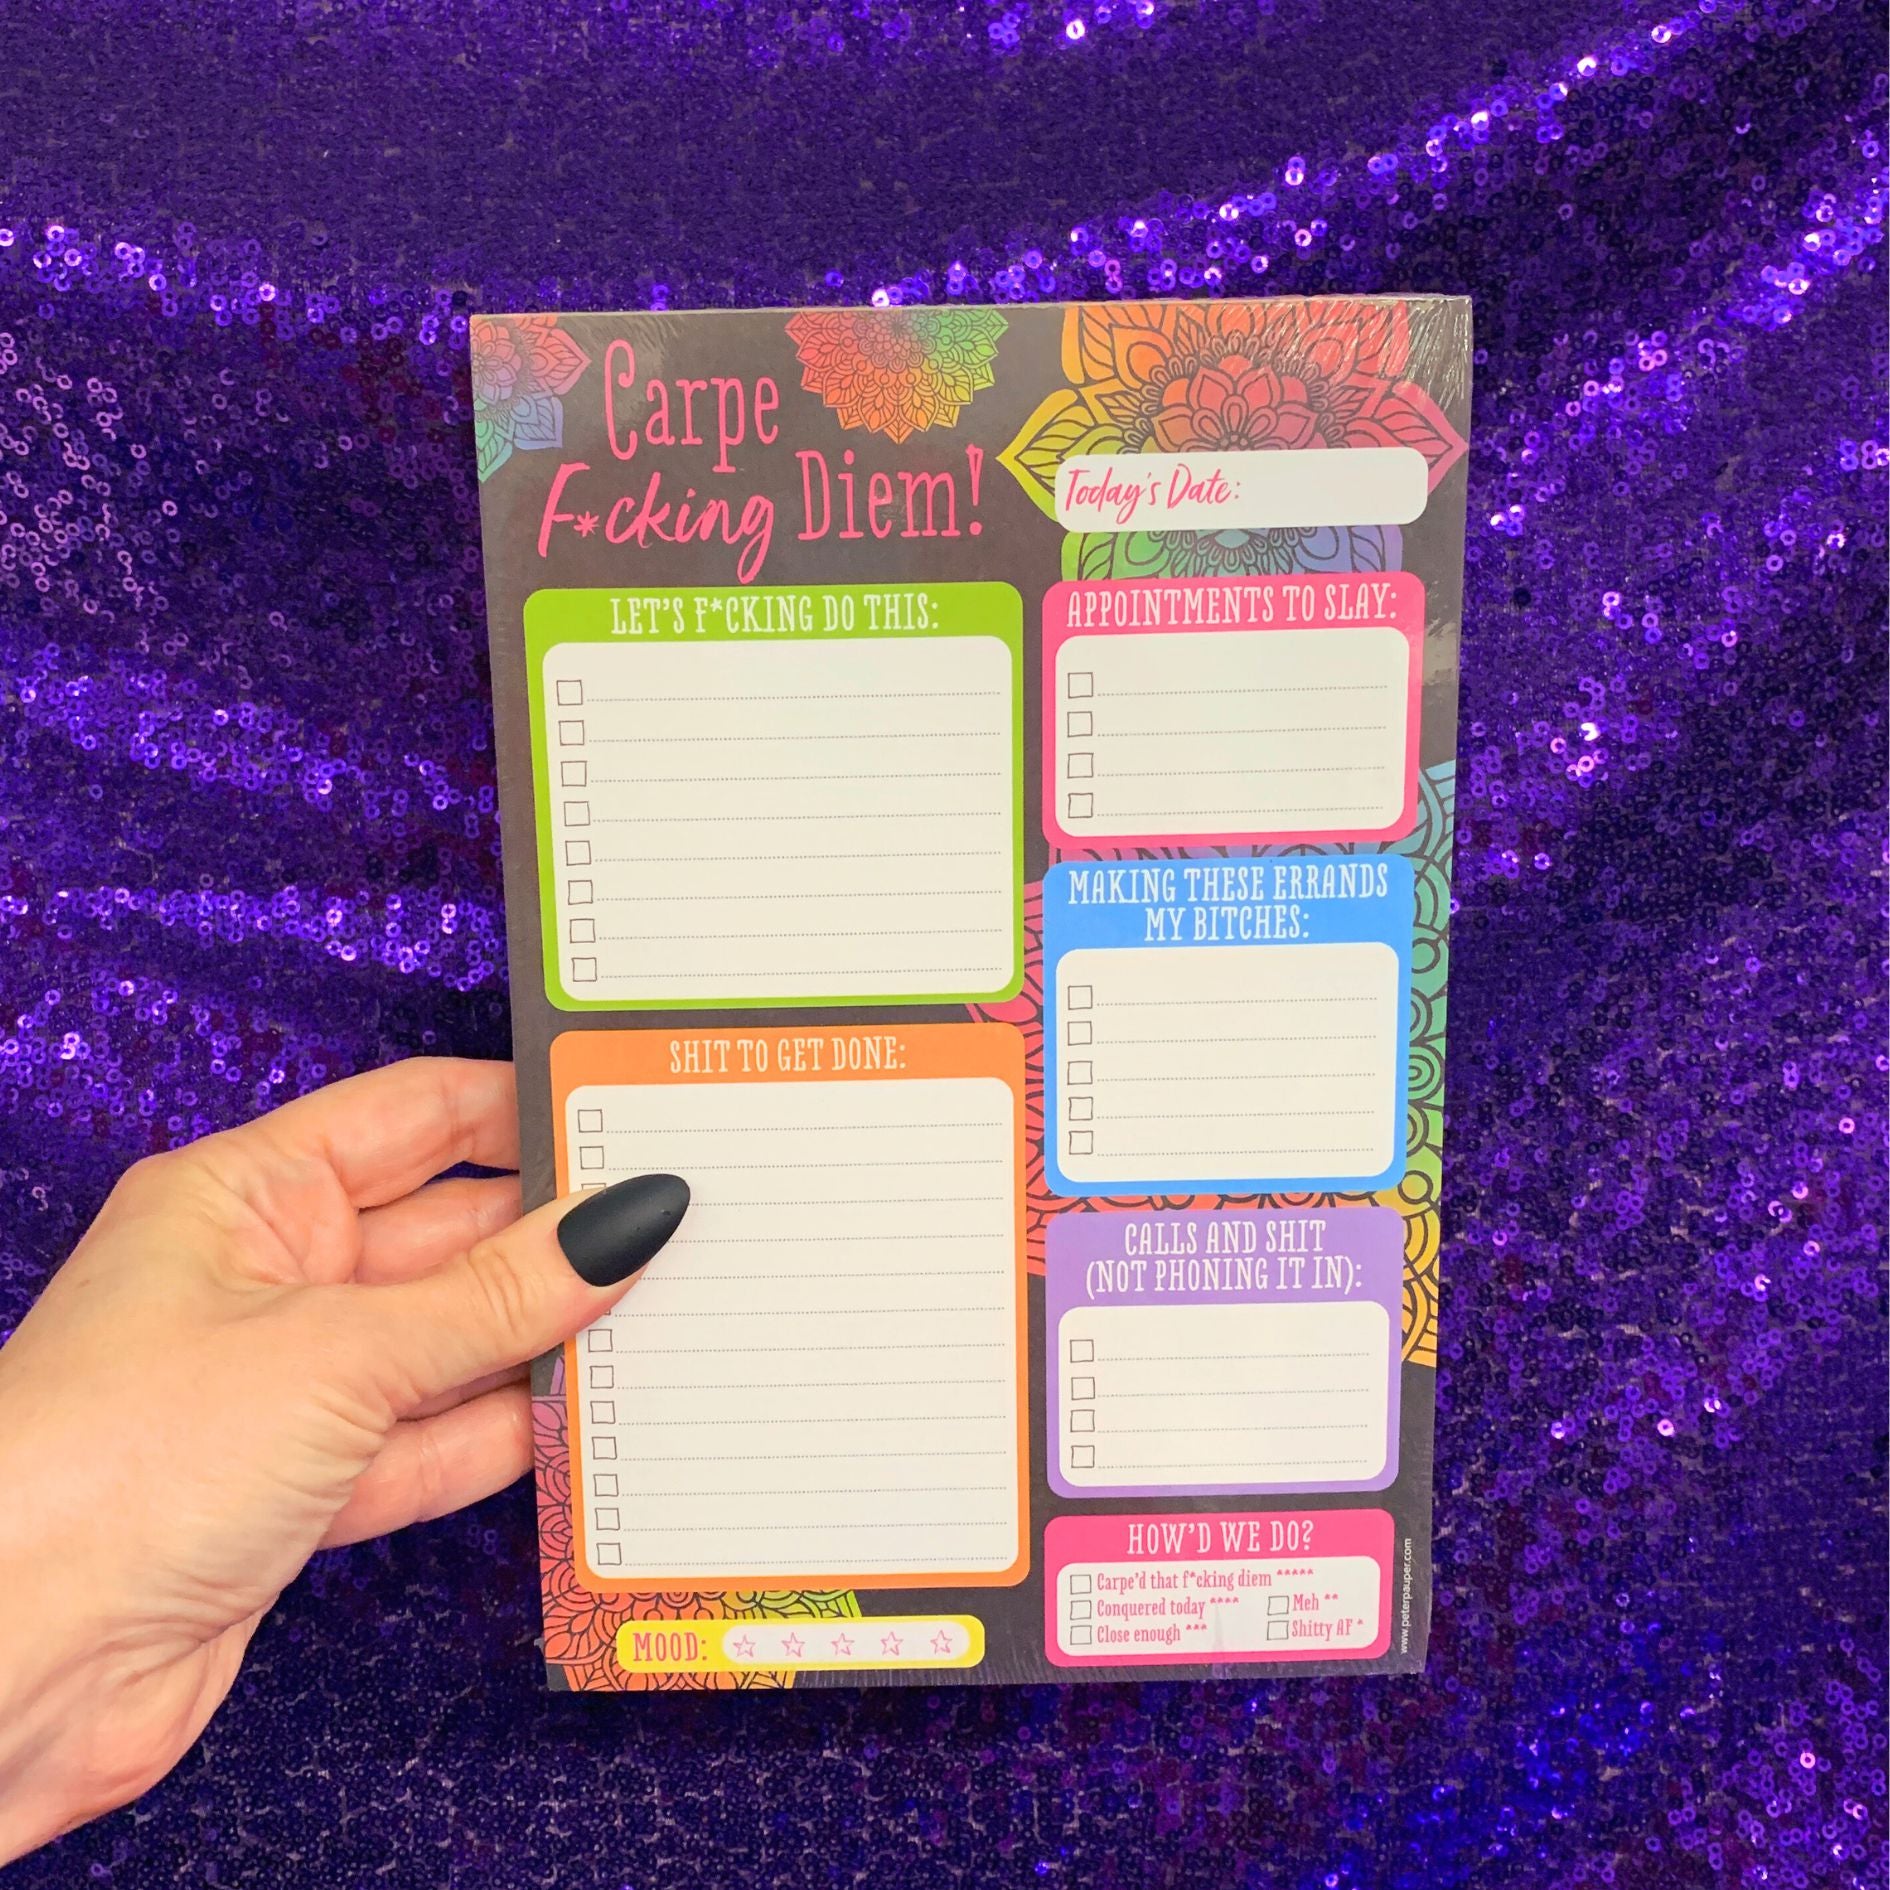 Carpe
F*cking Diem!
Today's Date:
LET'S F*CKING DO THIS:
APPOINTMENTS TO SLAY:
MAKING THESE ERRANDS
MY BITCHES:
SHIT TO GET DONE:
CALLS AND SHIT
(NOT PHONING IT IN):
HOW'D WE DO?
Carpe'd that f*cking diem *****
Conquered today ****
Meh **
Close enough ***
Shitty AF *
MOOD:
www.peterpauper.com